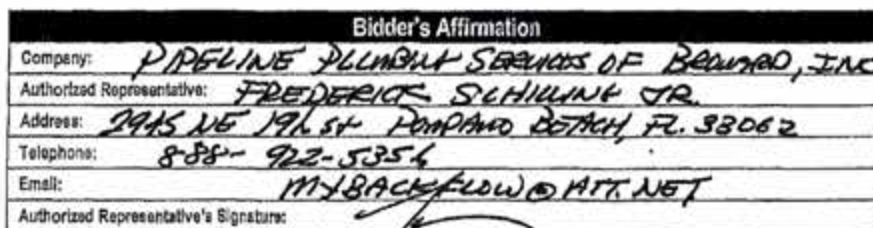 Bidder's Affirmation
Company: PIPELINE PLUMBING SERVICES OF BROWARD, INC
Authorized Representative: FREDERICK SCHILLING JR.
Address: NE 19th St POMPANO BEACH, FL. 33062
Telephone: 888-922-5356
Email: MYBACKFLOW@ATT.NET
Authorized Representative's Signature: